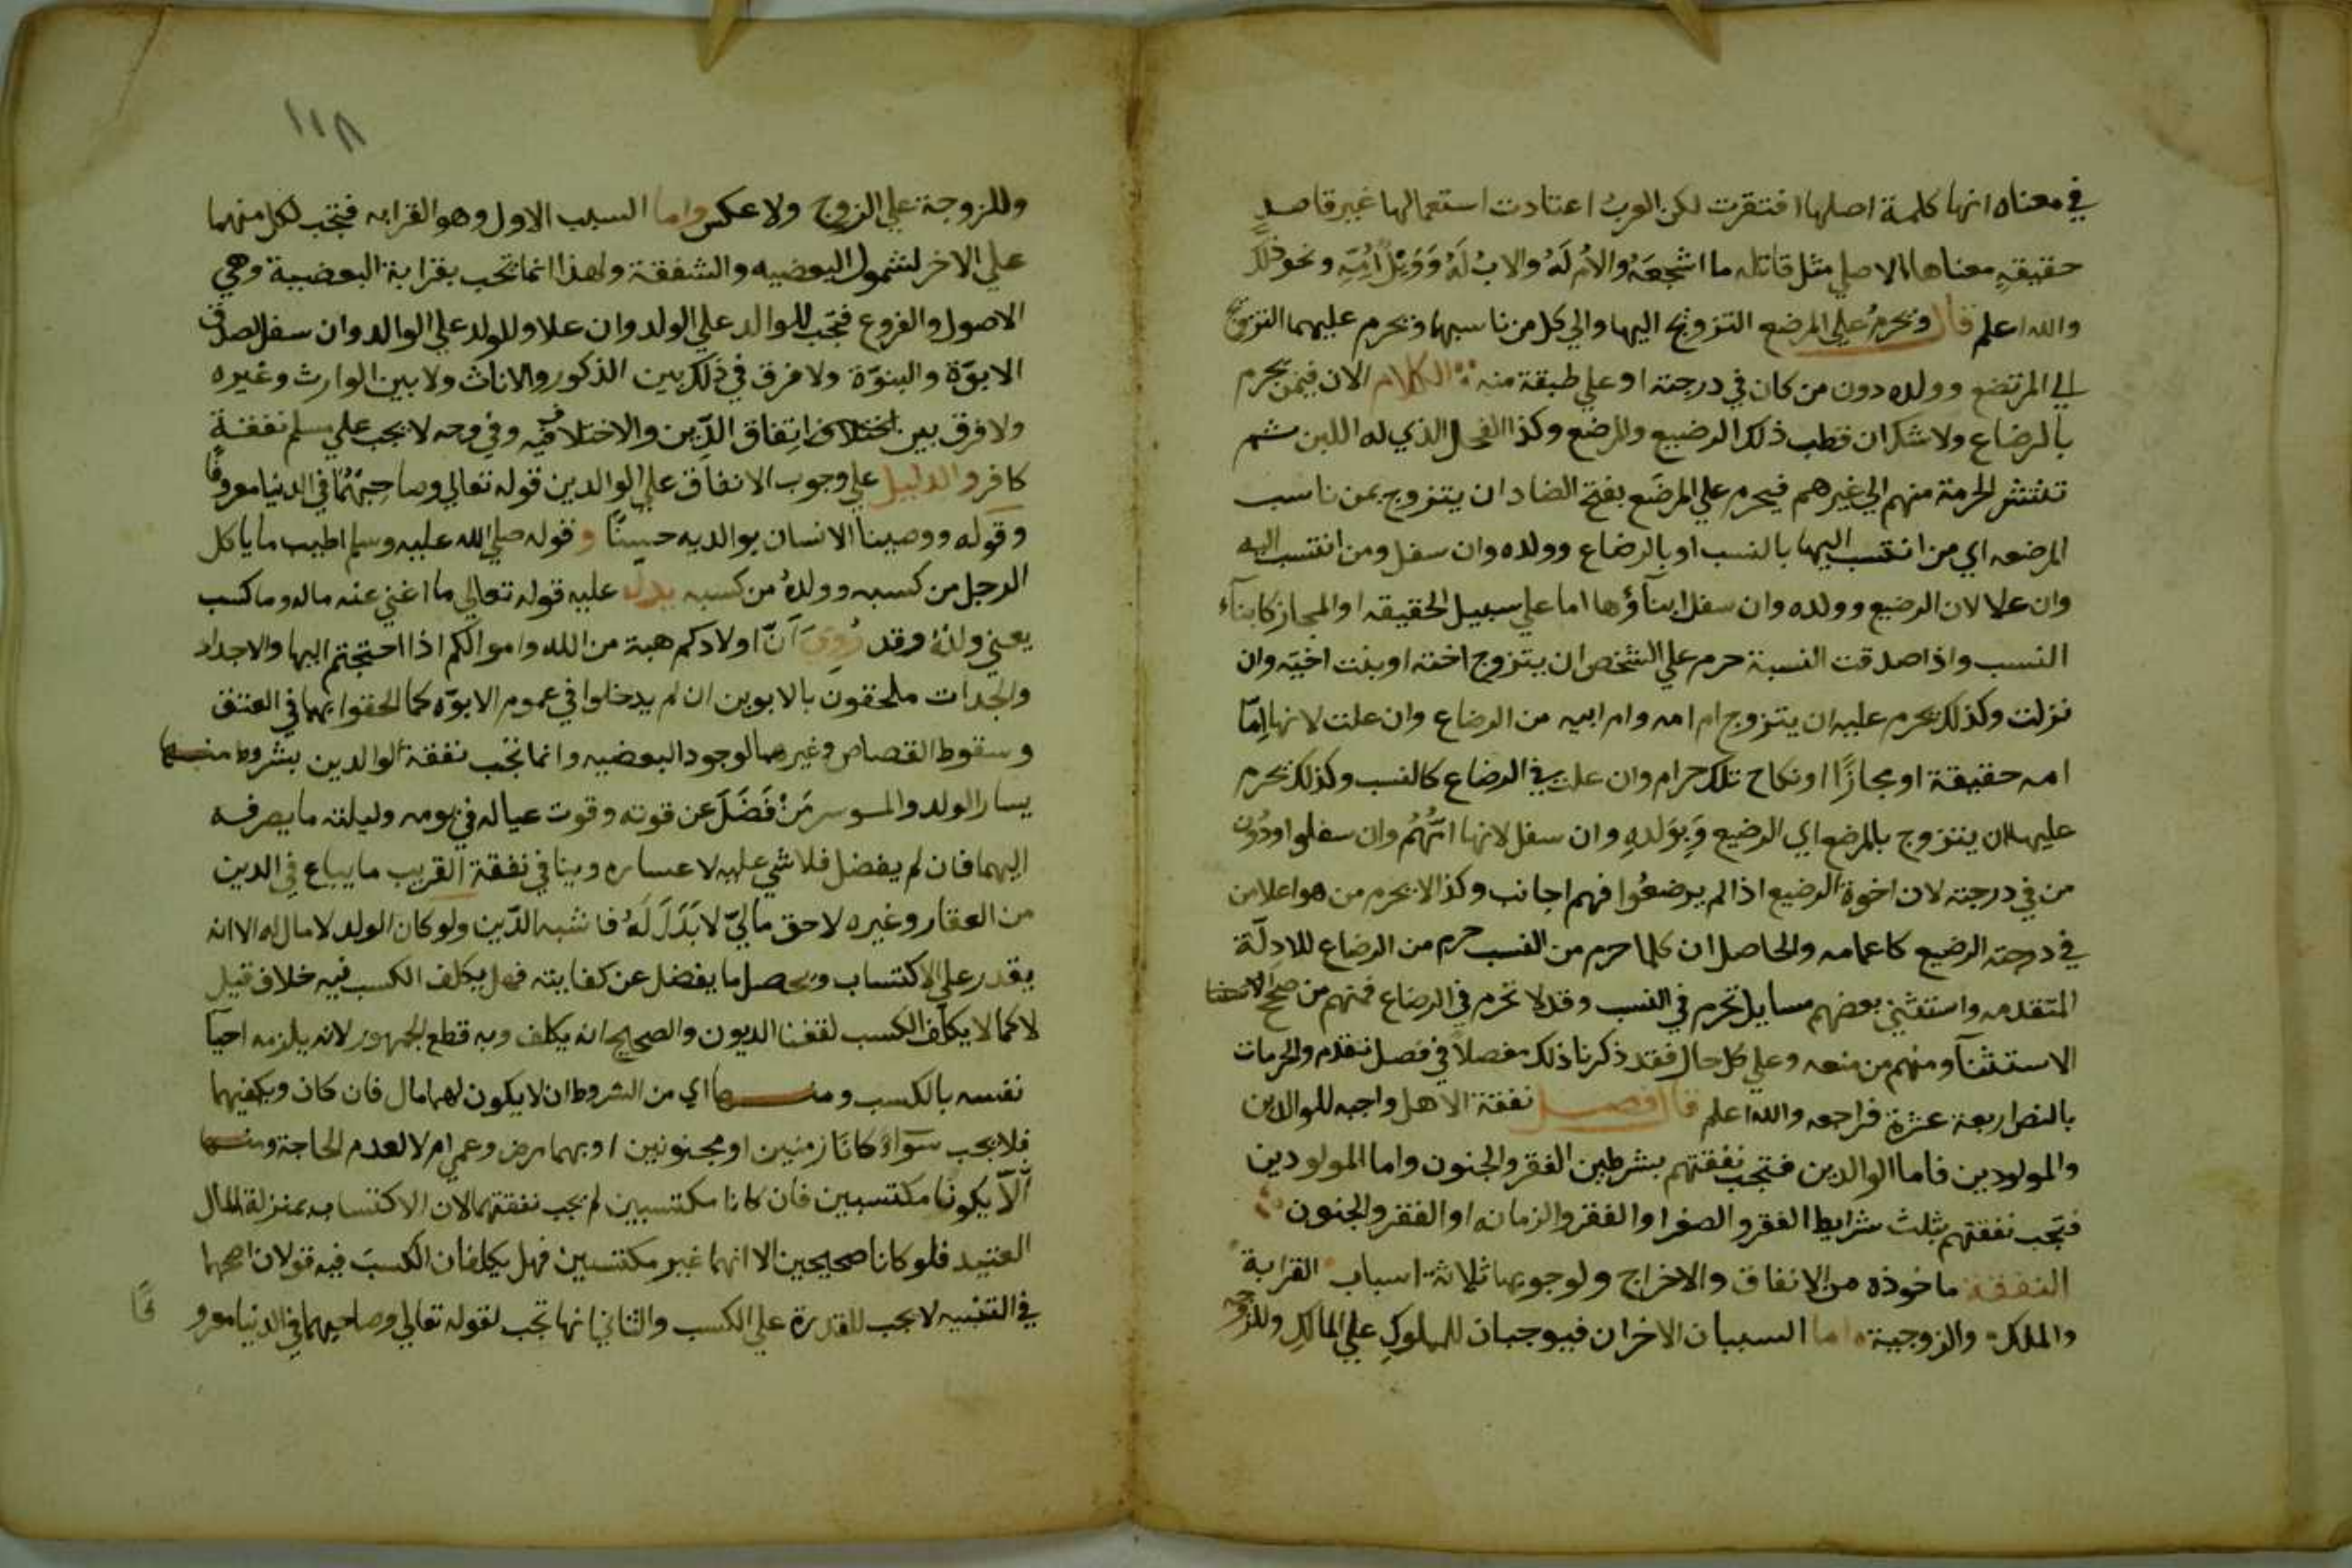 في معناه انها كلمة اصلها افتقرت لكن العرب اعتادت استعمالها غير قاصد
حقيقة معناها الاصلي مثل قاتله ما اشجعه والام له والاب له وويل امه ونحو ذلك
والله اعلم قال ويحرم على المرضع التزويج اليها والي كل من ناسبها ويحرم عليهما التزويج
الي المرتضع وولده دون من كان في درجته او علي طبقة منه الكلام الان فيمن يحرم
بالرضاع ولا شك ان قطب ذلك الرضيع والمرضع وكذا الفحل الذي له اللبن ثم
تنتشر الحرمة منهم الي غيرهم فيحرم علي المرضَع بفتح الضاد ان يتزوج بمن ناسب
المرضعه اي من انتسب اليها بالنسب او بالرضاع وولده وان سفل ومن انتسب اليه
وان علا لان الرضيع وولده وان سفل ابنآؤها اما علي سبيل الحقيقه او المجاز كابنآء
النسب واذا صدقت النسبة حرم علي الشخص ان يتزوج اخته او بنت اخيه وان
نزلت وكذلك يحرم عليه ان يتزوج ام امه وام ابيه من الرضاع وان علت لانها إمّا
امه حقيقة او مجازًا ونكاح تلك حرام وان علت في الرضاع كالنسب وكذلك يحرم
عليها ان يتزوج بالمرضع اي الرضيع وبولده وان سفل لانها امهم وان سفلوا دون
من في درجته لان اخوة الرضيع اذا لم يرضعوا فهم اجانب وكذا لا يحرم من هو اعلا من
في درجته الرضيع كاعمامه والحاصل ان كلما حرم من النسب حرم من الرضاع للادلّة
المتقدمه واستثني بعضهم مسايل تحرم في النسب وقد لا تحرم في الرضاع فمنهم من صحح
الاستثنآ ومنهم من منعه وعلي كل حال فقد ذكرنا ذلك مفصلاً في فصل تقدم والمحرمات
بالنص اربعة عشرة فراجعه والله اعلم قال فصل نفقة الاهل واجبه للوالدين
والمولودين فاما الوالدين فتجب نفقتهم بشرطين الفقر والجنون واما المولودين
فتجب نفقتهم بثلث شرايط الفقر والصغر او الفقر والزمانه او الفقر والجنون
النفقة ماخوذه من الانفاق والاخراج ولوجوبها ثلاثة اسباب القرابة
والملك والزوجية اما السببان الاخران فيوجبان للمملوك علي المالك وللزوجه
١١٨
وللزوجة علي الزوج ولا عكس واما السبب الاول وهو القرابه فتجب لكل منهما
علي الاخر لشمول البعضيه والشفقة ولهذا انما تجب بقرابة البعضية وهي
الاصول والفروع فتجب للوالد علي الولد وان علا وللولد علي الوالد وان سفل لصدق
الابوّة والبنوّة ولا فرق في ذلك بين الذكور والاناث ولا بين الوارث وغيره
ولا فرق بين اتفاق الدِّين والاختلاف فيه وفي وجه لا يجب علي مسلم نفقة
كافر والدليل علي وجوب الانفاق علي الوالدين قوله تعالي وصاحبهُمَا في الدنيا معروفًا
وقوله ووصينا الانسان بوالديه حسنًا وقوله صلي الله عليه وسلم اطيب ما ياكل
الرجل من كسبه وولدُه من كسبه يدل عليه قوله تعالي ما اغني عنه ماله وما كسب
يعني ولدُه وقد رُويَ أنّ اولادكم هبة من الله واموالكم اذا احتجتم اليها والاجداد
والجدات ملحقون بالابوين ان لم يدخلوا في عموم الابوّه كما الحقوا بهما في العتق
وسقوط القصاص وغيرهما لوجود البعضيه وانما تجب نفقة الوالدين بشروط منها
يسار الولد والموسر مَنْ فَضَلَ عن قوته وقوت عياله في يومه وليلته ما يصرفه
اليهما فان لم يفضل فلا شي عليه لاعساره ويباع في نفقة القريب ما يباع في الدين
من العقار وغيره لاحق ماليّ لا بَدَلَ لَهُ فاشبه الدّين ولو كان الولد لا مال له الا انه
يقدر علي الاكتساب ويحصل ما يفضل عن كفايته فهل يكلف الكسب فيه خلاف قيل
لا كما لا يكلف الكسب لقضا الديون والصحيح انه يكلف وبه قطع الجمهور لانه يلزمه احيآ
نفسه بالكسب ومنها اي من الشروط ان لا يكون لهما مال فان كان ويكفيهما
فلا يجب سَوَاءً كانا زمنين او مجنونين او بهما مرض وعمي ام لا لعدم الحاجة ومنها
ألّا يكونا مكتسبين فان كانا مكتسبين لم يجب نفقتهما لان الاكتساب بمنزلة المال
العتيد فلو كانا صحيحين الا انهما غير مكتسبين فهل يكلفان الكسبَ فيه قولان اصحهما
في التنبيه لا يجب للقدرة علي الكسب والثاني انها تجب لقوله تعالي وصاحبهما في الدنيا معرو
فًا